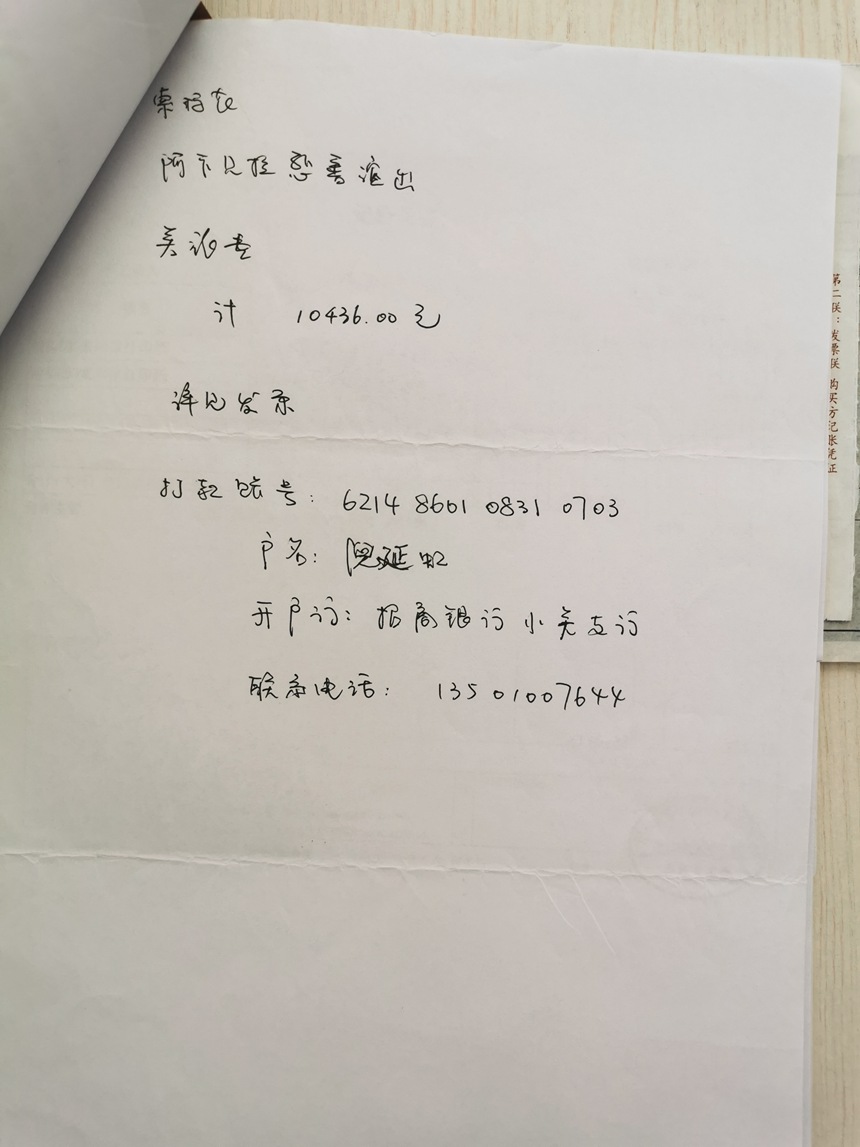 索玛花
阿卡贝拉慈善演出
差旅费
计 10436.00元
详见发票
打款账号: 6214 8601 0831 0703
户名: 倪延虹
开户行: 招商银行小关支行
联系电话: 13501007644
第二联:发票联 购买方记账凭证